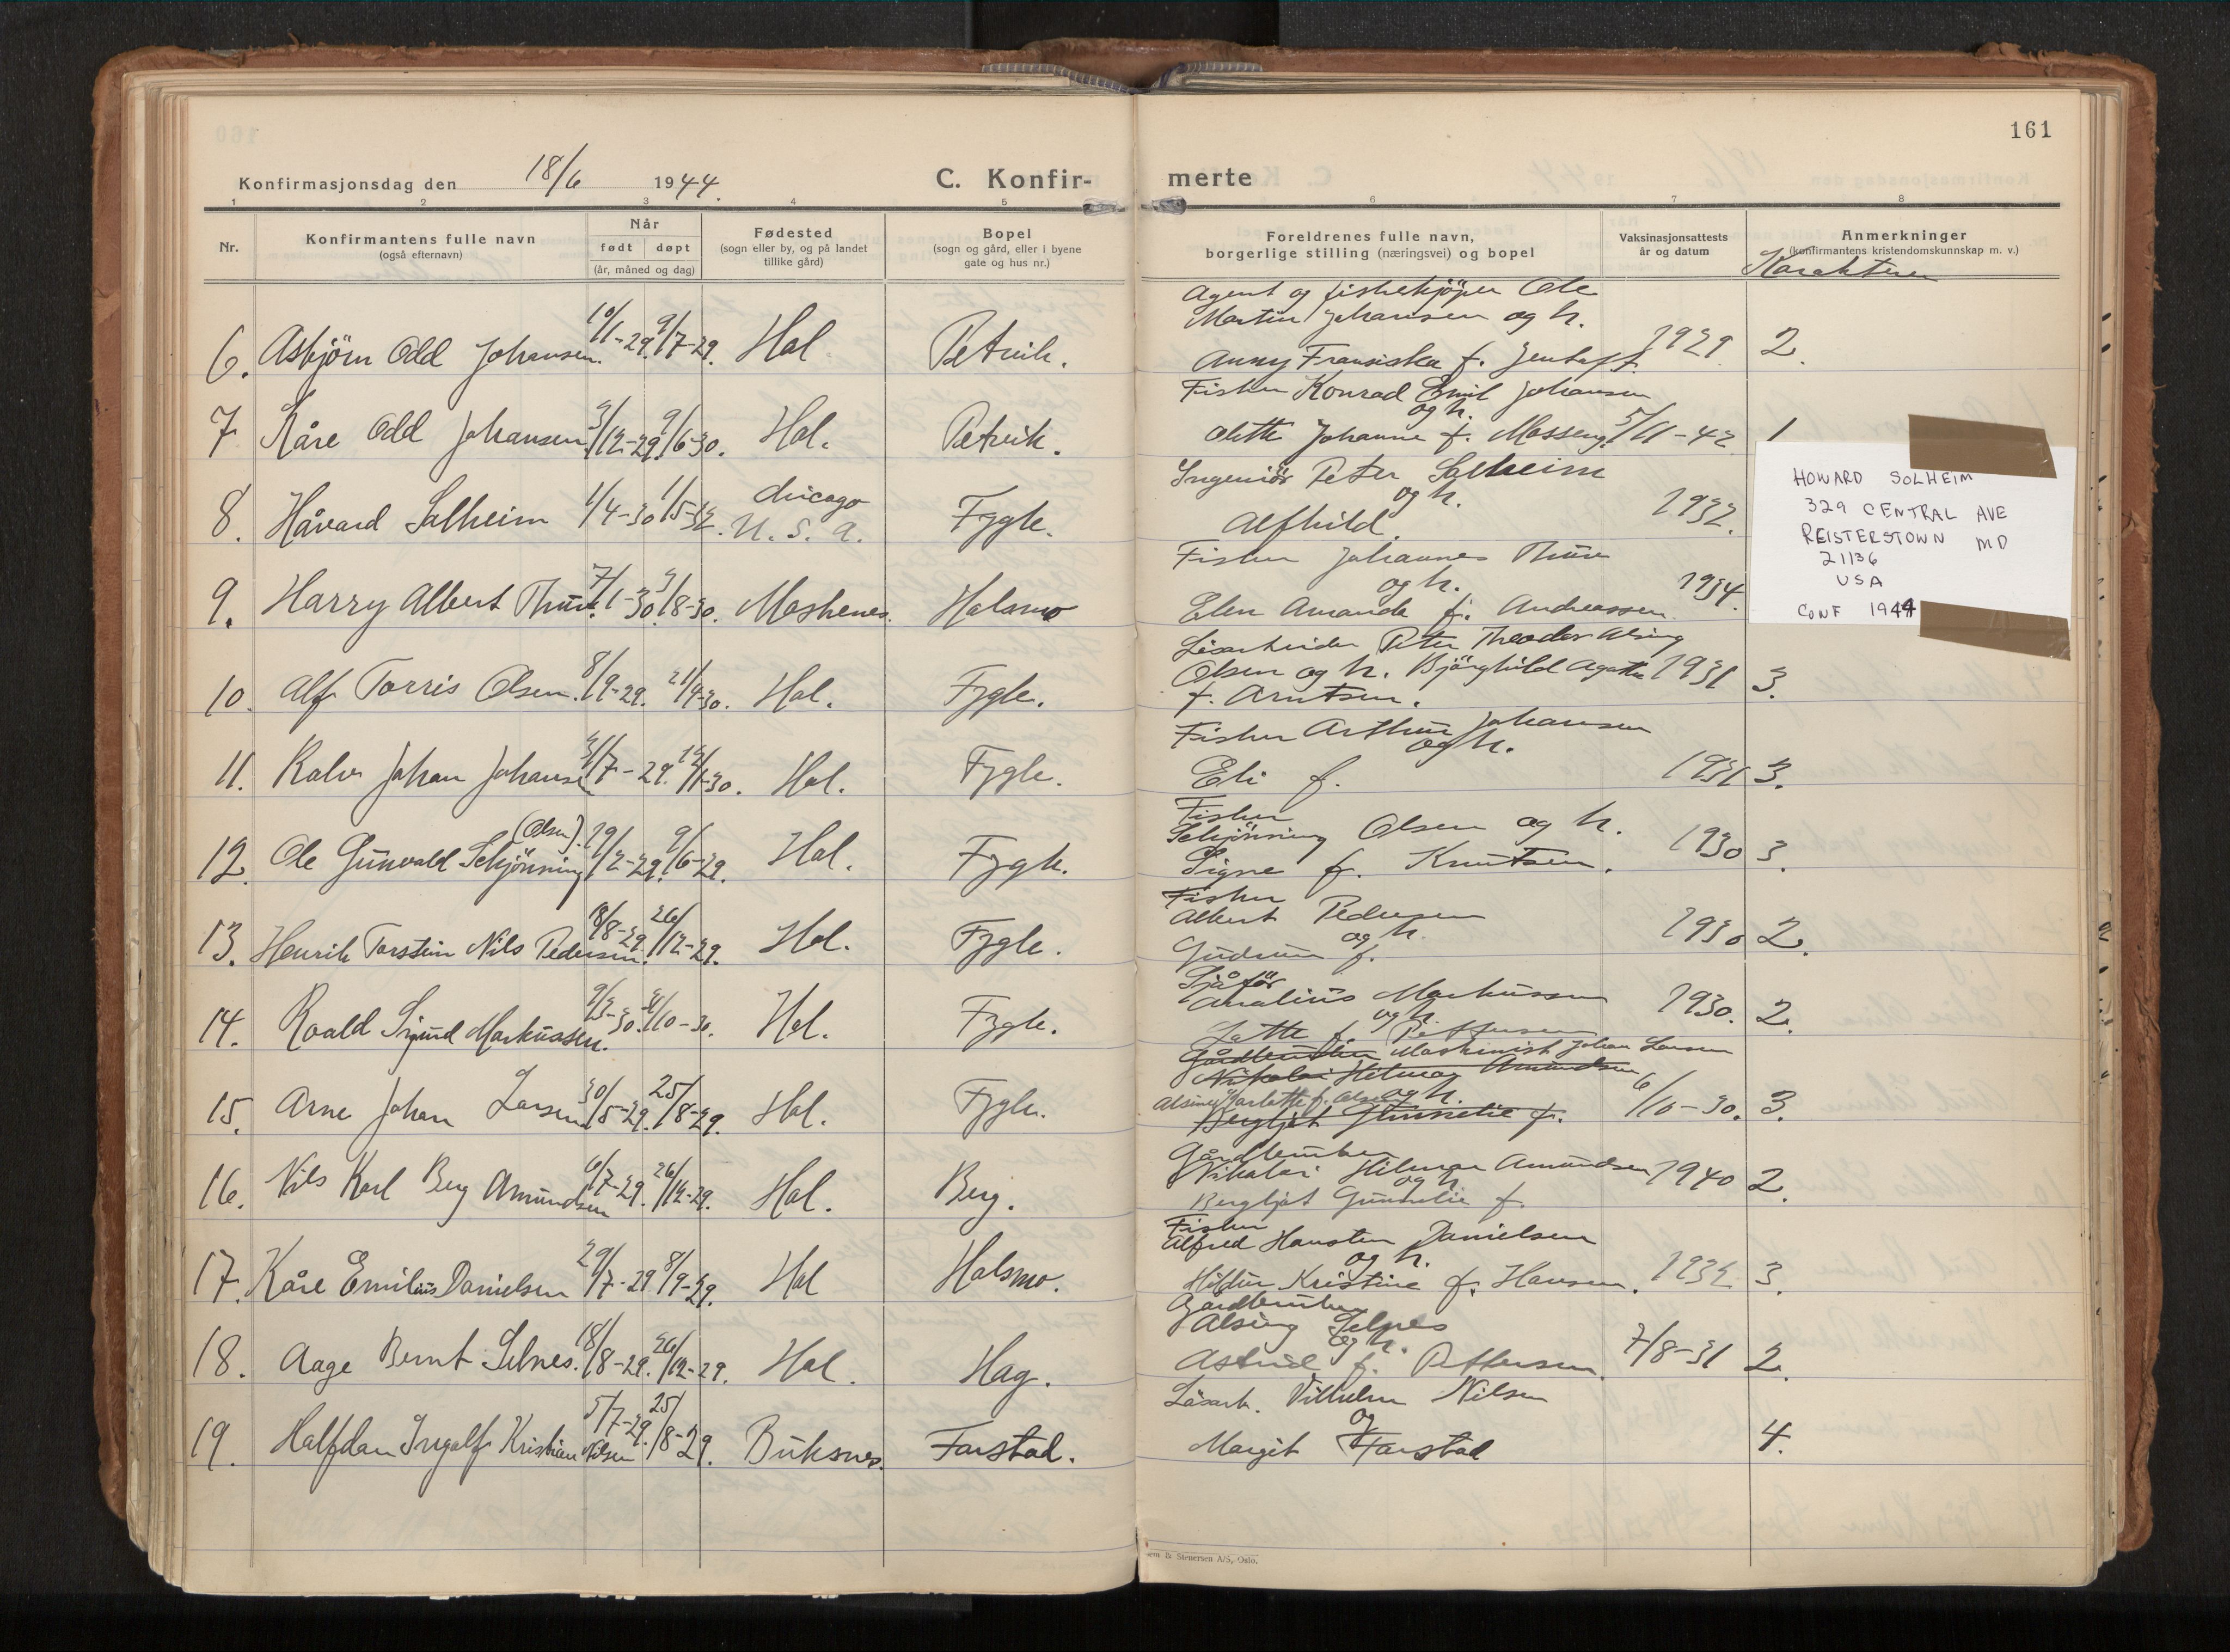 161
Konfirmasjonsdag den 18/6 1944.
C. Konfir-
merte
1 2 3 4 5 6 7 8
Nr.
Konfirmantens fulle navn
(også efternavn)
Når
født døpt
(år, måned og dag)
Fødested
(sogn eller by, og på landet
tillike gård)
Bopel
(sogn og gård, eller i byene
gate og hus nr.)
Foreldrenes fulle navn,
borgerlige stilling (næringsvei) og bopel
Vaksinasjonsattests
år og datum
Anmerkninger
(konfirmantens kristendomskunnskap m. v.)
Karakteren
Agent og fiskekjöper Ole
Martin Johansen og h.
6. Asbjörn Odd Johansen. 10/1-29. 9/7-29. Hol Petvik.
Anny Fransiska f. 1929 2.
Fisker Konrad Emil Johansen
og h.
7 Kåre Odd Johansen 3/12-29. 9/6-30. Hol. Petvik.
Olette Johanne f. Masseng. 5/11-42 1
Ingeniör Peter Solheim
og h.
8. Håvard Solheim 1/4-30 1/5-32. Chicago U. S. A. Fygle.
Alfhild 1932.
Fisker Johannes Thue
og h.
9. Harry Albert Thue. 7/1-30. 3/8-30. Moskenes. Holsmo
Elen Amanda f. Andreassen 1934.
HOWARD SOLHEIM
329 CENTRAL AVE
REISTERSTOWN MD
21136
USA
CONF 1944
Lösarbeider Peter Theodor Alsing
10. Alf Torris Olsen. 8/9-29. 21/4-30. Hol. Fygle.
Olsen og h. Bjørghild Agathe 1931 3.
f. Arntsen.
Fisker Arthur Johansen
og h.
11. Kalv Johan Johansen 3/7-29. 12/1-30. Hol. Fygle.
Eli f. 1931 3.
Fisker
Schjönning Olsen og h.
12. Ole Gunvald Schjönning (Olsen). 19/2-29. 9/6-29. Hol. Fygle.
Signe f. Knutsen. 1930 3.
Fisker
Albert Pedersen
og h.
13. Henrik Torstein Nils Pedersen. 18/8-29. 26/12-29. Hol. Fygle.
Gudrun f. 1930 2.
Sjåför
Analius Markussen
og h.
14. Roald Sigurd Markussen. 9/3-30. /10-30. Hol. Fygle.
f. Pettersen 1930. 2.
Gårdbruker Maskinist Johan Larsen
Nikolai Hilmar Amundsen
og h.
15. Arne Johan Larsen 30/5-29. 25/8-29. Hol. Fygle.
Bergljot Gunnelie f. 6/10-30. 3.
Gårdbruker
Nikolai Hilmar Amundsen
og h.
16. Nils Karl Berg Amundsen 6/7-29. 26/12-29. Hol. Berg.
Bergljot Gunnelie f. 1940 2.
Fisker
Alfred Hansten Danielsen
og h.
17. Kåre Emilius Danielsen 29/7-29 8/9-29. Hol Holsmo.
Hildur Kristine f. Hansen. 1932 3.
Gårdbruker
Alsing Selnes
og h.
18. Aage Bernt Selnes. 18/8-29. 26/12-29. Hol. Hag.
Astrid f. Pettersen. 7/8-31 2.
Lösarb. Vilhelm Nilsen
og
19. Halfdan Ingolf Kristian Nilsen 5/7-29. 25/8-29. Buksnes. Farstad.
Margit Farstad 4.
Stenersen A/S, Oslo.